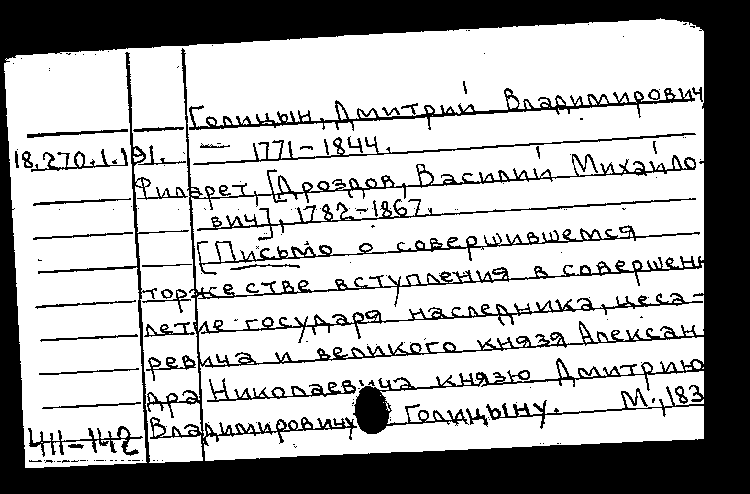 Голицын, Дмитрий Владимирович,
18.270.1.191. — 1771-1844.
Филарет, [Дроздов, Василий Михайло-
вич], 1782-1867.
[Письмо о совершившемся
торжестве вступления в совершен
летие государя наследника, цеса-
ревича и великого князя Алексан
дра Николаевича князю Дмитрию
Владимировичу Голицыну. М., 183
411-142